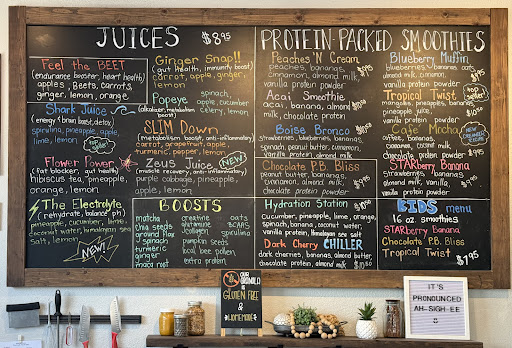 JUICES $8.95
Feel the BEET
(endurance booster, heart health)
apples, Beets, carrots,
ginger, lemon, orange
Shark Juice
(energy & brain boost, detox)
spirulina, pineapple, apple,
lime, lemon
Flower Power
(fat blocker, gut health)
hibiscus tea, pineapple,
orange, lemon
The Electrolyte
(rehydrate, balance ph)
pineapple, cucumber, lime,
coconut water, himalayan sea
salt, lemon
NEW!
Ginger Snap!!
(gut health, immunity boost)
carrot, apple, ginger,
lemon
Popeye
(alkalizer, metabolism
boost)
spinach,
apple, cucumber
celery, lemon
SLIM Down
(metabolism boost, anti-inflammatory)
carrot, grapefruit, apple,
turmeric, pepper, lemon
Zeus Juice NEW
(muscle recovery, anti-inflammatory)
purple cabbage, pineapple,
apple, lemon
BOOSTS
matcha
chia seeds
ground flax
spinach
turmeric
ginger
maca root
creatine
glutamine
collagen
pumpkin seeds
local bee pollen
extra protein
oats
BCAAS
spirulina
PROTEIN-PACKED SMOOTHIES
Peaches 'N Cream
peaches, bananas,
cinnamon, almond milk,
vanilla protein powder
Acai Smoothie
acai, banana, almond
milk, chocolate protein
Boise Bronco
Strawberries, blueberries, bananas,
spinach, peanut butter, cinnamon,
vanilla protein, almond milk
Chocolate P.B. Bliss
Peanut butter, bananas,
cinnamon, almond milk,
chocolate protein powder
Hydration Station
Cucumber, pineapple, lime, orange,
spinach, banana, coconut water,
vanilla protein, Himalayan sea salt
Dark Cherry CHILLER
dark cherries, bananas, almond butter,
chocolate protein, almond milk $10.50
Blueberry Muffin
blueberries, bananas, oats,
almond milk, cinnamon,
vanilla protein powder
Tropical Twist
mangoes, pineapples, bananas,
vanilla protein powder
Cafe Mocha
coconut, almond milk
chocolate protein powder
STARberry Banana
Strawberries, bananas,
almond milk, vanilla
protein powder
KIDS menu
16 oz. smoothies
STARberry Banana
Chocolate P.B. Bliss
Tropical Twist $7.95
OUR GRANOLA IS
GLUTEN FREE
&
HOMEMADE
IT'S
PRONOUNCED
AH-SIGH-EE